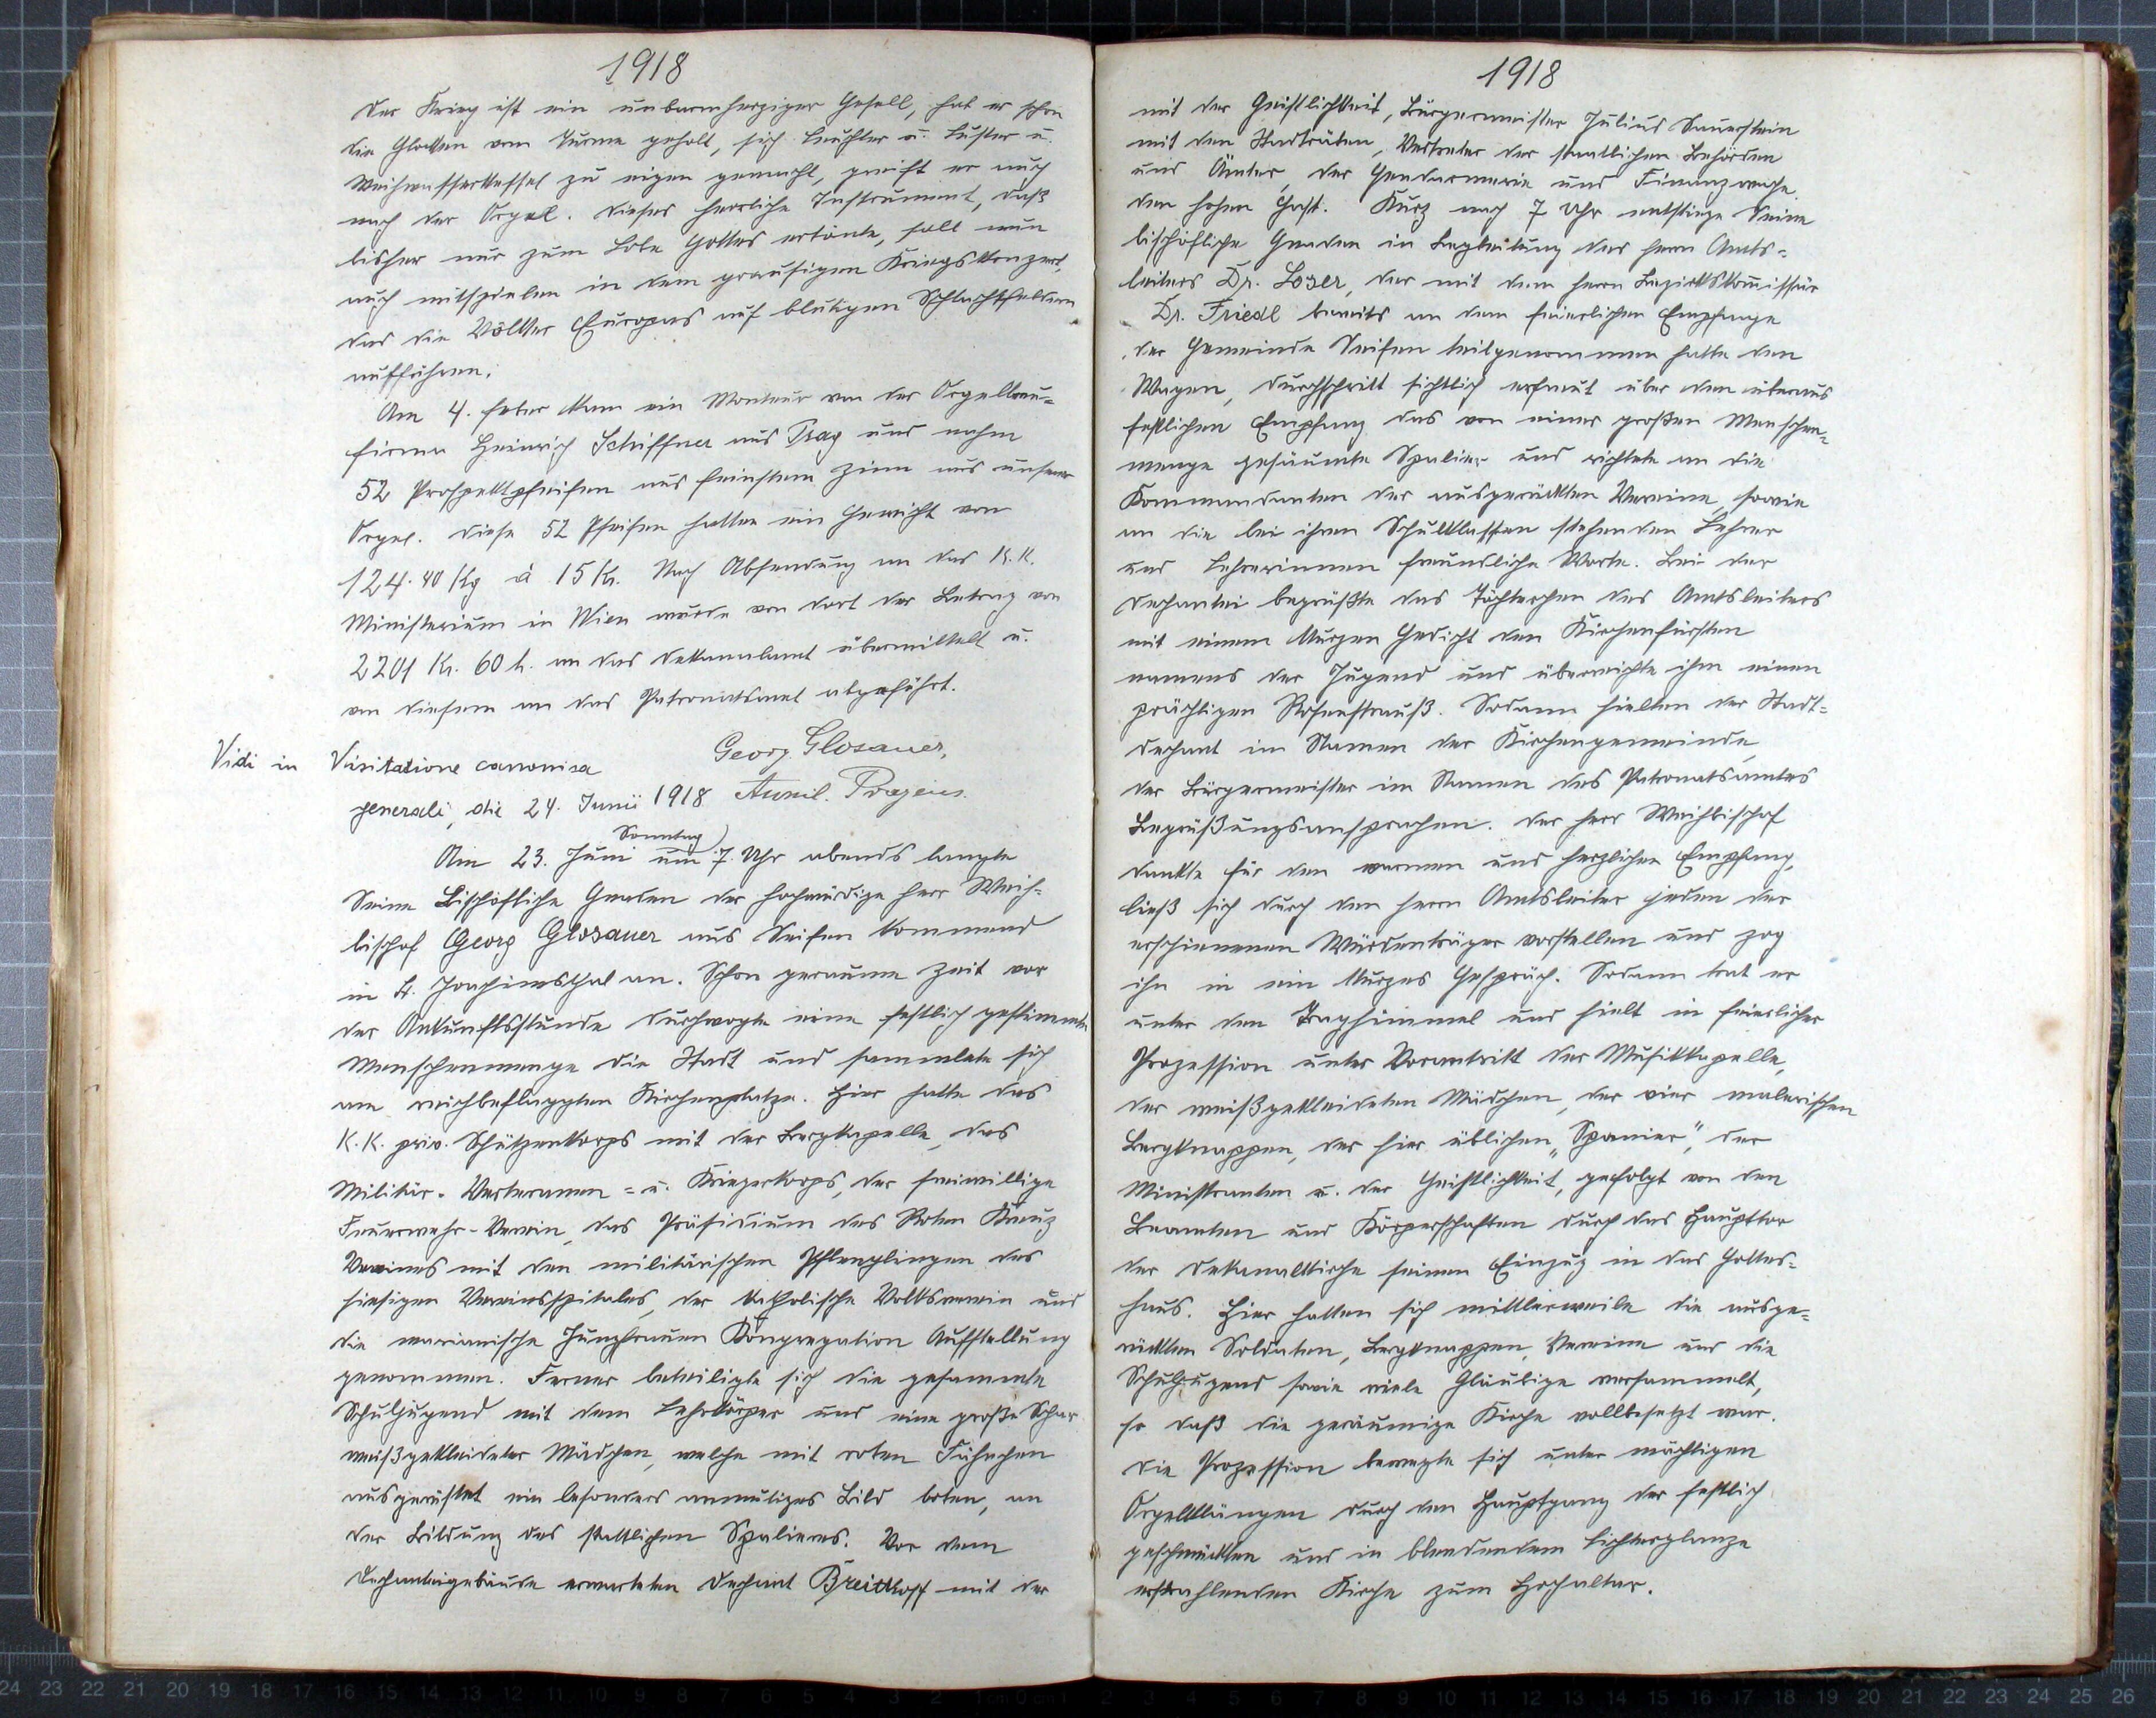 1918
Der Krieg ist ein unbarmherziger Gesell, hat er schon
die Glocken vom Turme geholt, sich Leuchter u. Luster u.
Weihwasserkessel zu eigen gemacht, greift er auch
nach der Orgel. Dieses herrliche Instrument, daß
bisher nur zum Lobe Gottes ertönte, soll nun
auch mitspielen in dem grausigen Kriegskonzert,
das die Völker Europas auf blutigen Schlachtfeldern
aufführen.
Am 4. feber kam ein Monteur von der Orgelbau-
firma Heinrich Schiffner aus Prag und nahm
52 Prospektpfeifen aus feinstem Zinn aus unserer
Orgel. Diese 52 Pfeifen hatten ein Gewicht von
124.40 Kg à 15 Kr. Nach Absendung an das K. K.
Ministerium in Wien wurde von dort der Betrag von
2201 Kr. 60 h. an das Dekanalamt übermittelt u.
von diesem an das Patronatsamt abgeführt.
Vidi in Visitatione canonica Georg Glosauer,
generali, die 24. Junii 1918 Auxil. Pragens.
Sonntag)
Am 23. Juni um 7. Uhr abends langte
Seine Bischöfliche Gnaden der hochwürdige Herr Weih-
bischof Georg Glosauer aus Seifen kommend
in St. Joachimsthal an. Schon geraume Zeit vor
der Ankunftsstunde durchwogte eine festlich gestimmte
Menschenmenge die Stadt und sammelte sich
am reichbeflaggten Kirchenplatze. Hier hatte das
K. K. priv. Schützenkorps mit der Bergkapelle, das
Militär- Verteranen = u. Kriegerkorps, der freiwillige
Feuerwehr-Verein, das Präsidium des Roten Kreuz
Vereines mit den militärischen Pfleglingen des
hiesigen Vereinsspitales, der katholische Volksverein und
die marianische Jungfrauen Kongregation Aufstellung
genommen. Ferner beteiligte sich die gesammte
Schuljugend mit dem Lehrkörper und eine große Schar
weißgekleideter Mädchen, welche mit roten Fähnchen
ausgerüstet ein besonders anmutiges Bild boten, an
der Bildung des stattlichen Spalieres. Vor dem
Dechanteigebäude erwarteten Dechant Breitkopf mit der
1918
mit der Geistlichkeit, Bürgermeister Julius Sauerstein
mit den Stadträten, Vertreter der staatlichen Behörden
und Ämter, der Gendarmerie und Finanzwache
den hohen Gast. Kurz nach 7 Uhr entstiege Seine
bischöfliche Gnaden in Begleitung des Herrn Amts-
leiters Dr. Lözer, der mit dem Herrn Bezirkskom̅issär
Dr. Friedl bereits an dem feierlichen Empfange
der Gemeinde Seifen teilgenommen hatte den
Wagen, durchschritt sichtlich erfreut über den überaus
festlichen Empfang das von einer großen Menschen-
menge gesäumte Spalier und richtete an die
Kommandanten der ausgerückten Vereine, sowie
an die bei ihren Schulklassen stehenden Lehrer
und Lehrerinnen freundliche Worte. Bei der
Dechantei begrüßte das Töchterchen des Amtsleiters
mit einem kurzen Gedicht den Kirchenfürsten
namens der Jugend und überreichte ihm einen
prächtigen Rosenstrauß. Sodann hielten der Stadt-
dechant im Namen der Kirchengemeinde,
der Bürgermeister im Namen des Patronatsamtes
Begrüßungsansprachen. Der Herr Weihbischof
dankte für den warmen und herzlichen Empfang,
ließ sich durch den Herrn Amtsleiter jeden der
erschienenen Würdenträger vorstellen und zog
ihn in ein kurzes Gespräch. Sodann trat er
unter den Traghimmel und hielt in feierlicher
Prozession unter Vorantritt der Musikkapelle,
der weißgekleideten Mädchen, der vier malerischen
Bergknappen, der hier üblichen „Spanier", der
Ministranten u. der Geistlichkeit, gefolgt von den
Beamten und Körperschaften durch das Haupttor
der Dekanalkirche seinen Einzug in das Gottes-
haus. Hier hatten sich mittlerweile die ausge-
rückten Soldaten, Bergknappen, Vereine und die
Schuljugend sowie viele Gläubige versammelt,
so daß die geräumige Kirche vollbesetzt war.
Die Prozession bewegte sich unter mächtigen
Orgelklängen durch den Hauptgang der festlich
geschmückten und in blendendem Lichterglanze
erstrahlenden Kirche zum Hochaltar.
24 23 22 21 20 19 18 17 16 15 14 13 12 11 10 9 8 7 6 5 4 3 2 1 cm 0 cm 1 2 3 4 5 6 7 8 9 10 11 12 13 14 15 16 17 18 19 20 21 22 23 24 25 26